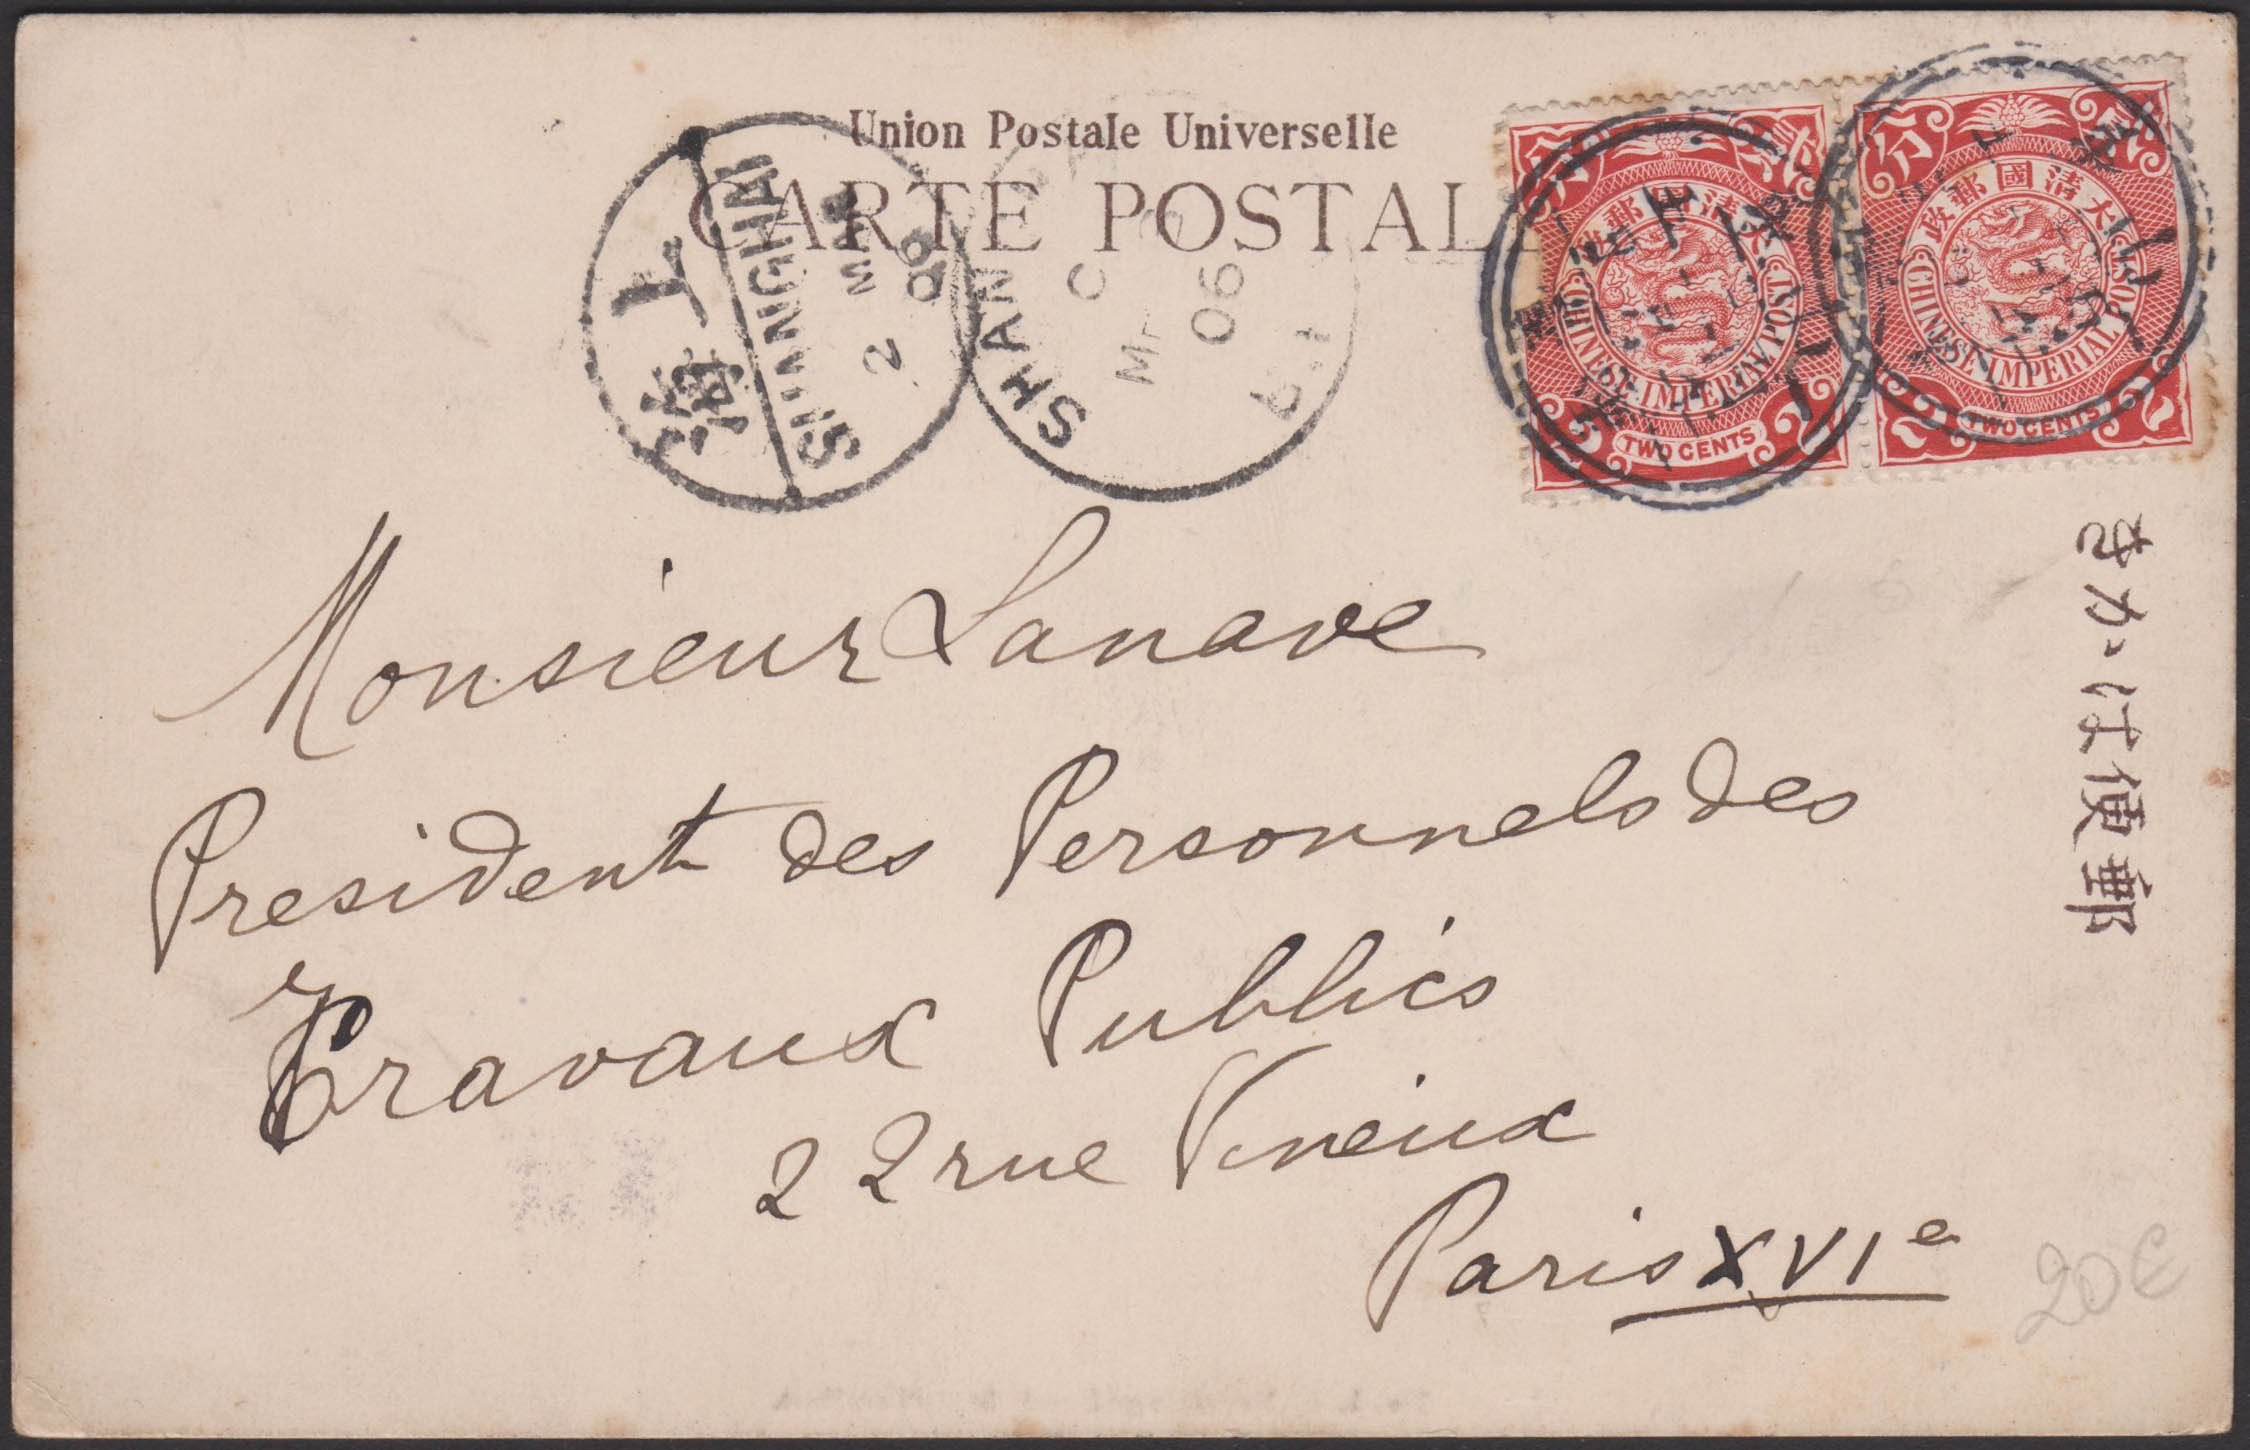 Union Postale Universelle
CARTE POSTALE
上海
SHANGHAI
2
06
SHAN
06
大清國郵政
CHINESE IMPERIAL POST
TWO CENTS
分
大清國郵政
CHINESE IMPERIAL POST
TWO CENTS
2
きかは便郵
Monsieur Lanave
President des Personnels des
Travaux Publics
22 rue Vineux
Paris XVIe
20€